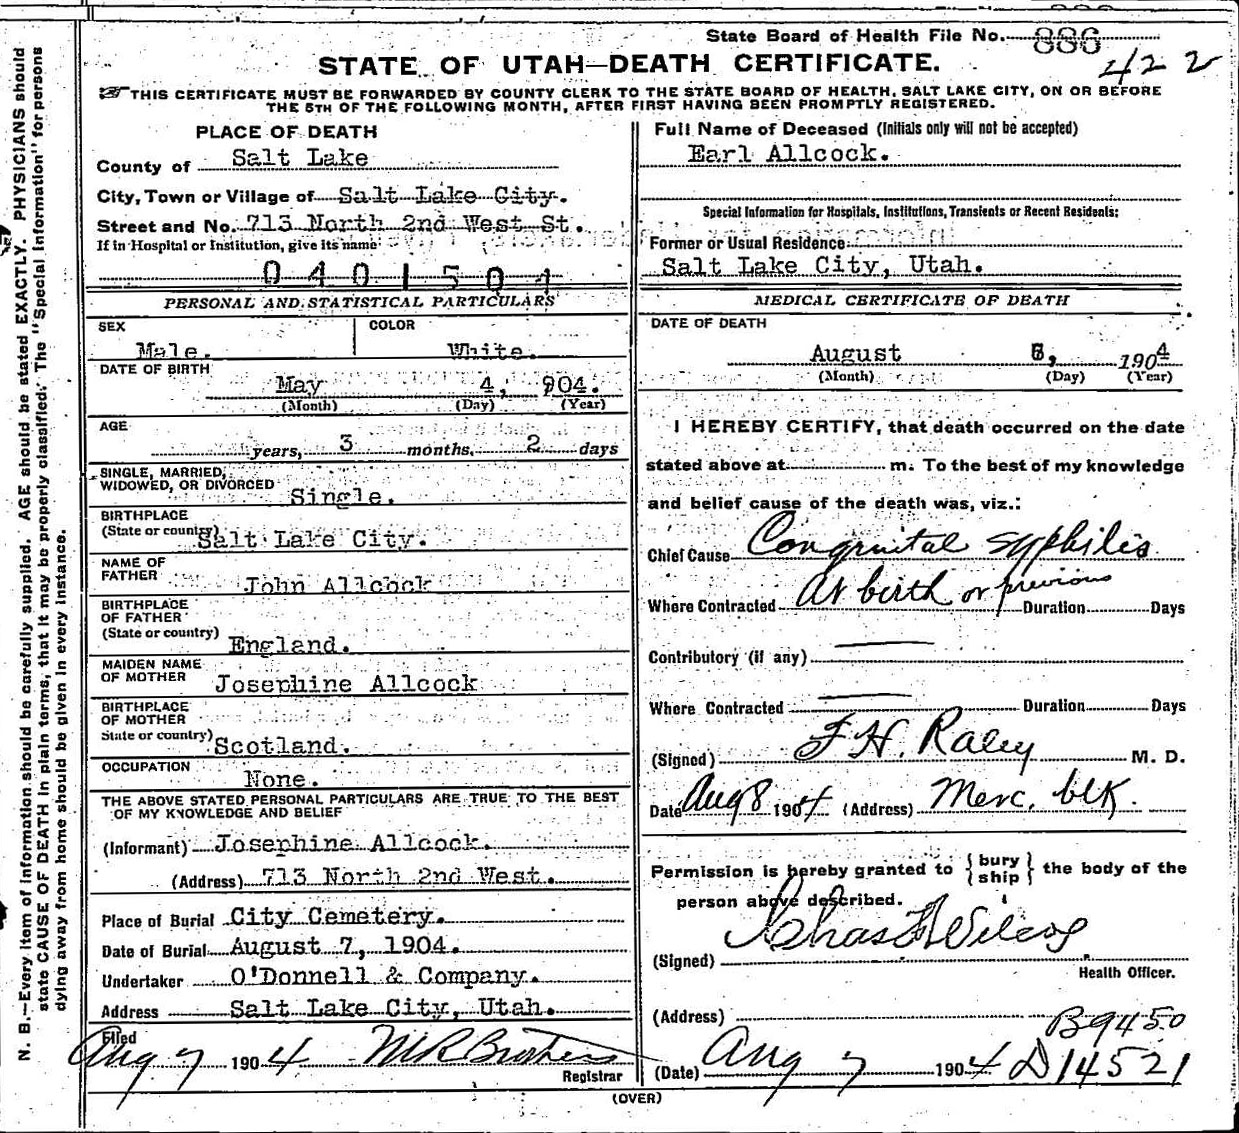 State Board of Health File No. 886
422
STATE OF UTAH—DEATH CERTIFICATE.
THIS CERTIFICATE MUST BE FORWARDED BY COUNTY CLERK TO THE STATE BOARD OF HEALTH, SALT LAKE CITY, ON OR BEFORE
THE 5TH OF THE FOLLOWING MONTH, AFTER FIRST HAVING BEEN PROMPTLY REGISTERED.
PLACE OF DEATH
County of Salt Lake
City, Town or Village of Salt Lake City.
Street and No. 713 North 2nd West St.
If in Hospital or Institution, give its name
0401504
PERSONAL AND STATISTICAL PARTICULARS
SEX COLOR
Male. White.
DATE OF BIRTH
May 4, 904.
(Month) (Day) (Year)
AGE
years, 3 months, 2 days
SINGLE, MARRIED,
WIDOWED, OR DIVORCED
Single.
BIRTHPLACE
(State or country) Salt Lake City.
NAME OF
FATHER John Allcock
BIRTHPLACE
OF FATHER
(State or country) England.
MAIDEN NAME
OF MOTHER Josephine Allcock
BIRTHPLACE
OF MOTHER
State or country) Scotland.
OCCUPATION None.
THE ABOVE STATED PERSONAL PARTICULARS ARE TRUE TO THE BEST
OF MY KNOWLEDGE AND BELIEF
(Informant) Josephine Allcock.
(Address) 713 North 2nd West.
Place of Burial City Cemetery.
Date of Burial August 7, 1904.
Undertaker O'Donnell & Company.
Address Salt Lake City, Utah.
Filed
Aug 7 1904 M R Brothers
Registrar
Full Name of Deceased (Initials only will not be accepted)
Earl Allcock.
Special Information for Hospitals, Institutions, Transients or Recent Residents:
Former or Usual Residence
Salt Lake City, Utah.
MEDICAL CERTIFICATE OF DEATH
DATE OF DEATH
August 6, 1904
(Month) (Day) (Year)
I HEREBY CERTIFY, that death occurred on the date
stated above at m. To the best of my knowledge
and belief cause of the death was, viz.:
Chief Cause Congenital syphilis
Where Contracted At birth or previous Duration Days
Contributory (if any) —
Where Contracted — Duration Days
(Signed) F H. Raley M. D.
Date Aug 8 1904 (Address) Merc. blk.
Permission is hereby granted to {bury
ship} the body of the
person above described.
(Signed) Chas F Wilcox
Health Officer.
(Address)
B9450
(Date) Aug 7 1904 D14521
(OVER)
N. B.—Every item of information should be carefully supplied. AGE should be stated EXACTLY. PHYSICIANS should
state CAUSE OF DEATH in plain terms, that it may be properly classified. The "Special Information" for persons
dying away from home should be given in every instance.